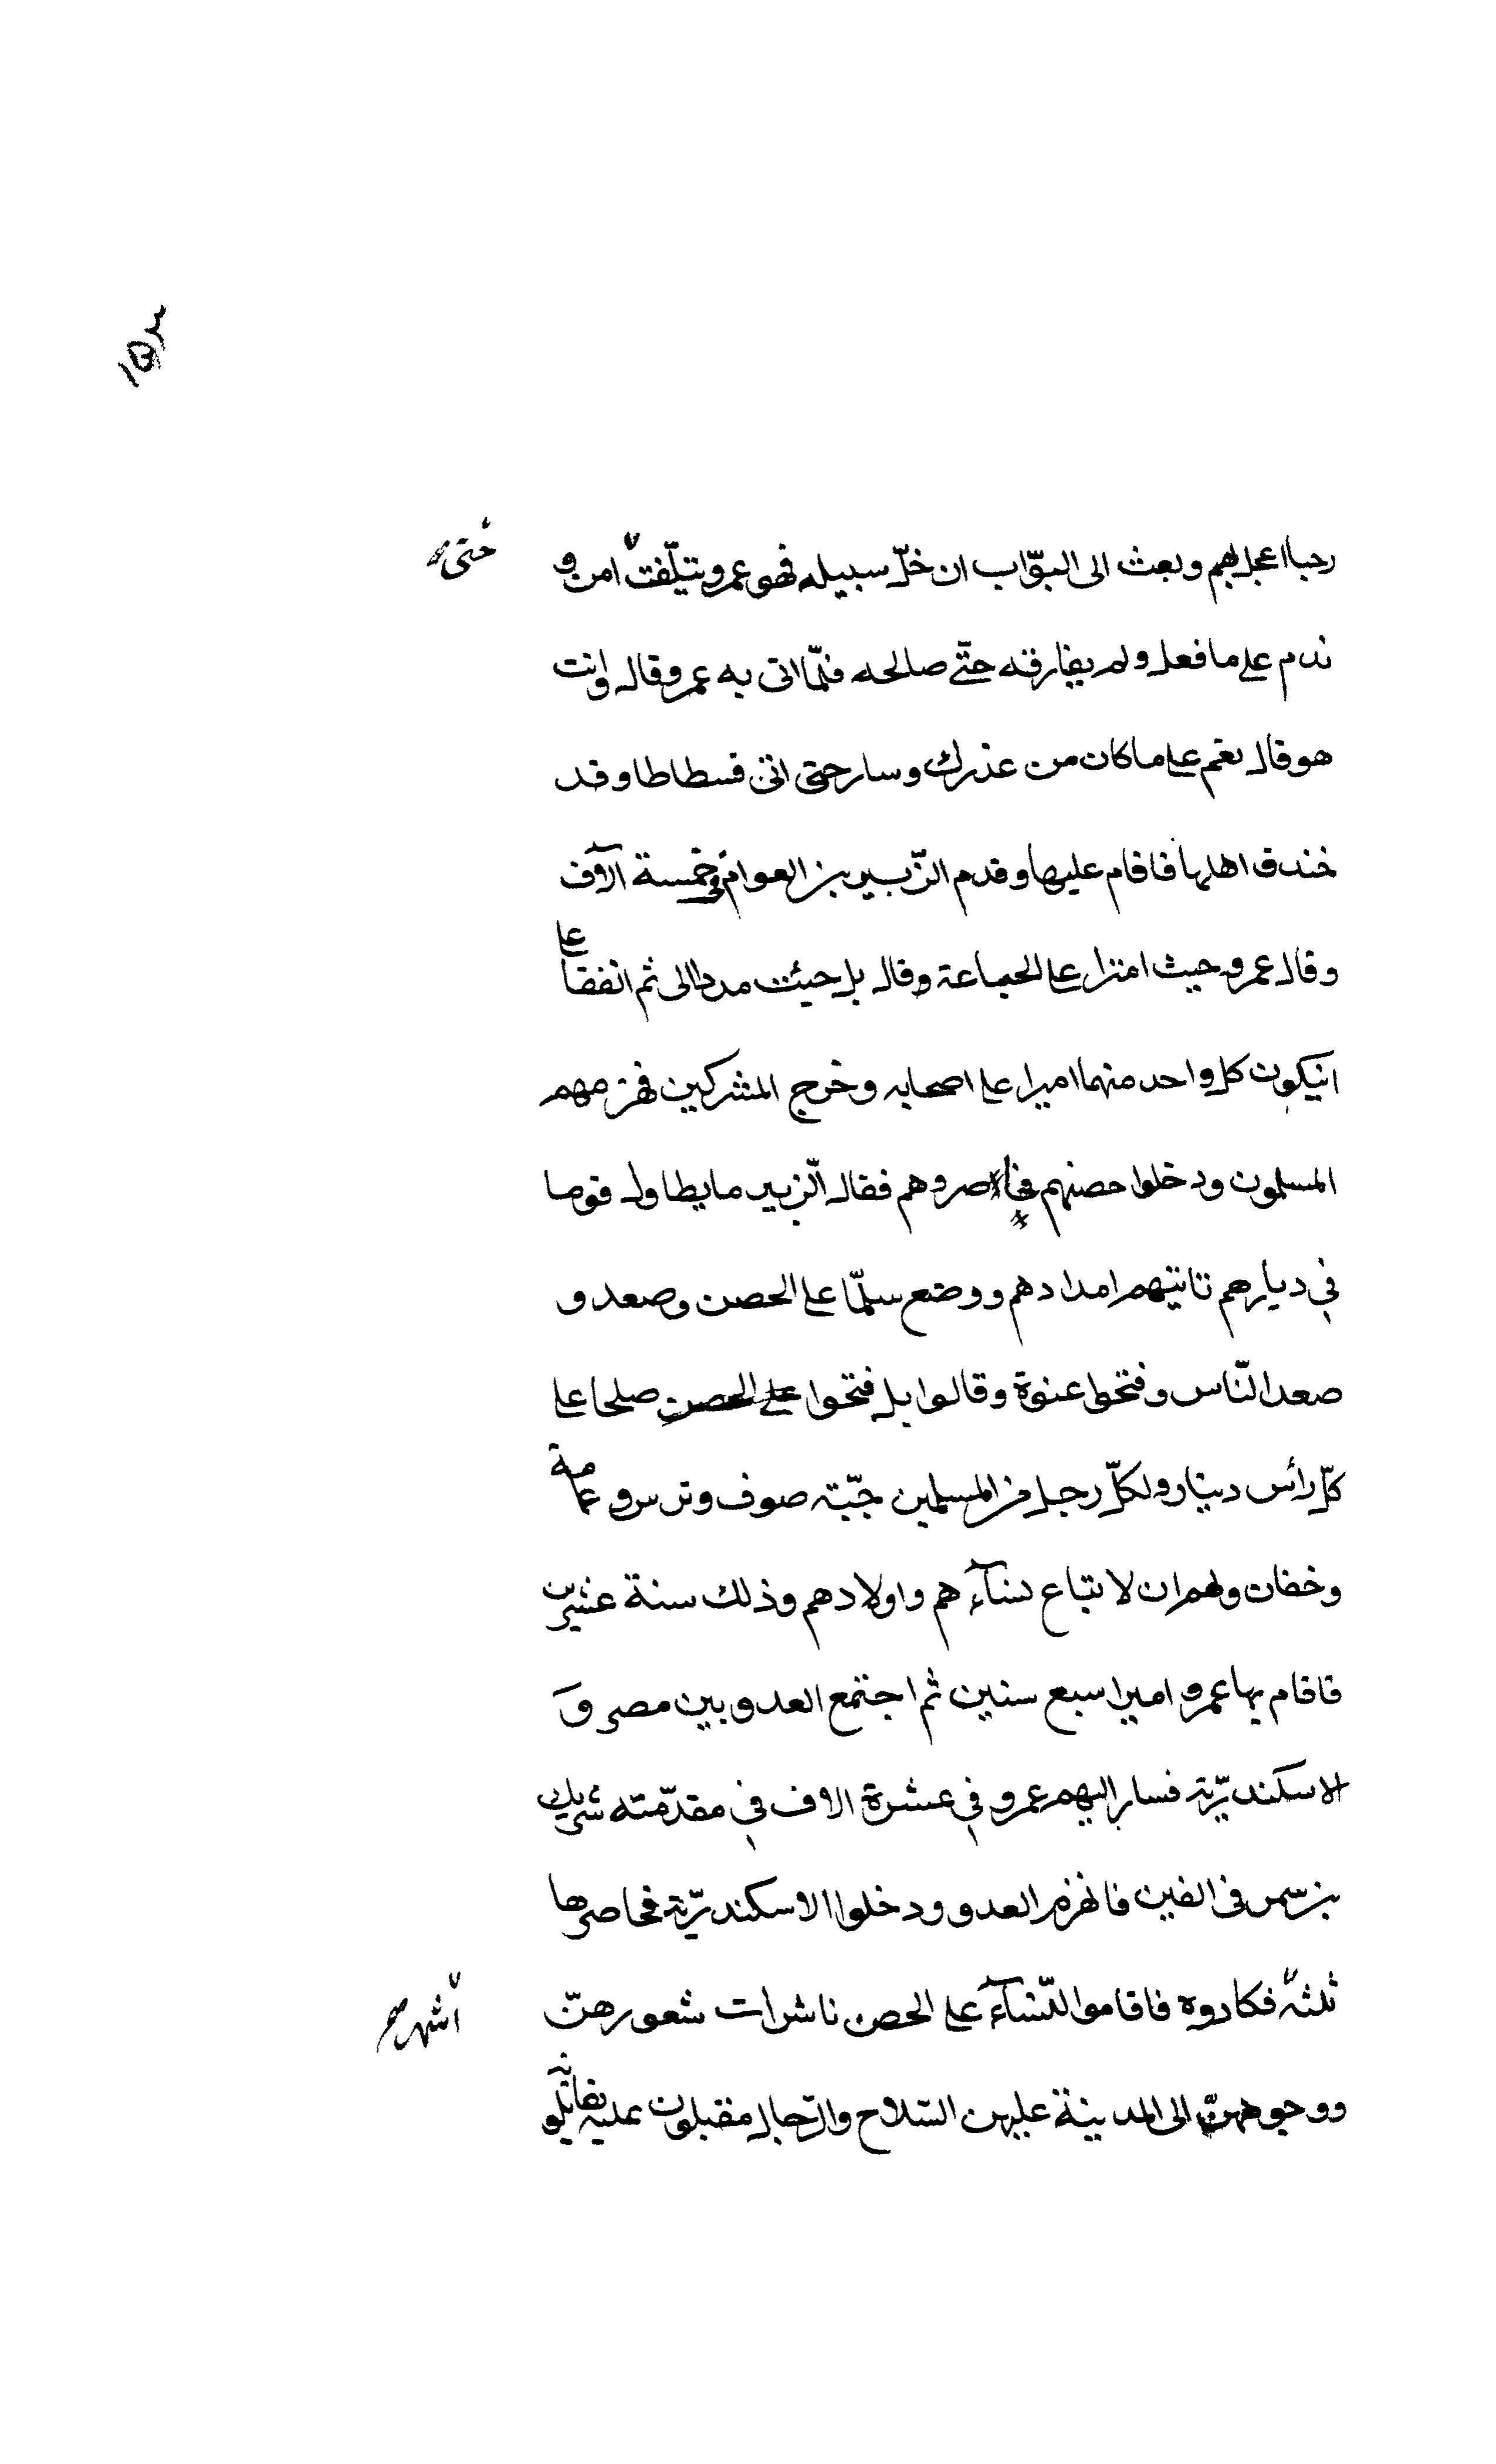 رحبا اعجل بهم وبعث الى البوّاب ان خلّ سبيله فهو عمرو يتلّفت امن و
حتى
ندم على ما فعل ولم يفارقه حتّى صالحه فلمّا اتى به عمرو قال وانت
هو قال نعم على ما كان من غدرك وسار حتى اتى فسطاطا وقد
خندق اهلها فاقام عليها وقدم الزّبير بن العوام فى خمسة الآف
وقال عمرو حيث امتزا على الجماعة وقال بل جيئت مددا الى ثم اتفقا على
انيكون كل واحد منهما اميرا على اصحابه وخرج المشركين فهزمهم
المسلمون ودخلوا حصنهم فحاصروهم فقال الزّبير ما يطاول قوما
في ديارهم تاتيهم امدادهم ووضع سلّما على الحصن وصعد و
صعد النّاس وفتحوا عنوة وقالوا بل فتحوا على الحصن صلحا على
كلّ رأس دينار ولكلّ رجل من المسلمين جبّته صوف وترس وعمامة
وخفان ولهم ان لا يتباع نسآءهم واولادهم وذلك سنة عشرين
فاقام بها عمرو اميرا سبع سنين ثم اجتمع العدو بين مصر و
الاسكندريّة فسار اليهم عمرو في عشرة الاف في مقدّمته شريك
بن سمى فى الفين فانهزم العدو ودخلوا الاسكندريّة فحاصرها
ثلثة فكادوه فاقاموا النّسآء على الحصن ناشرات شعورهنّ
اشهر صح
ووجوههنّ الى المدينة عليهن السّلاح والرّجال مقبلون عليه يقاتلو